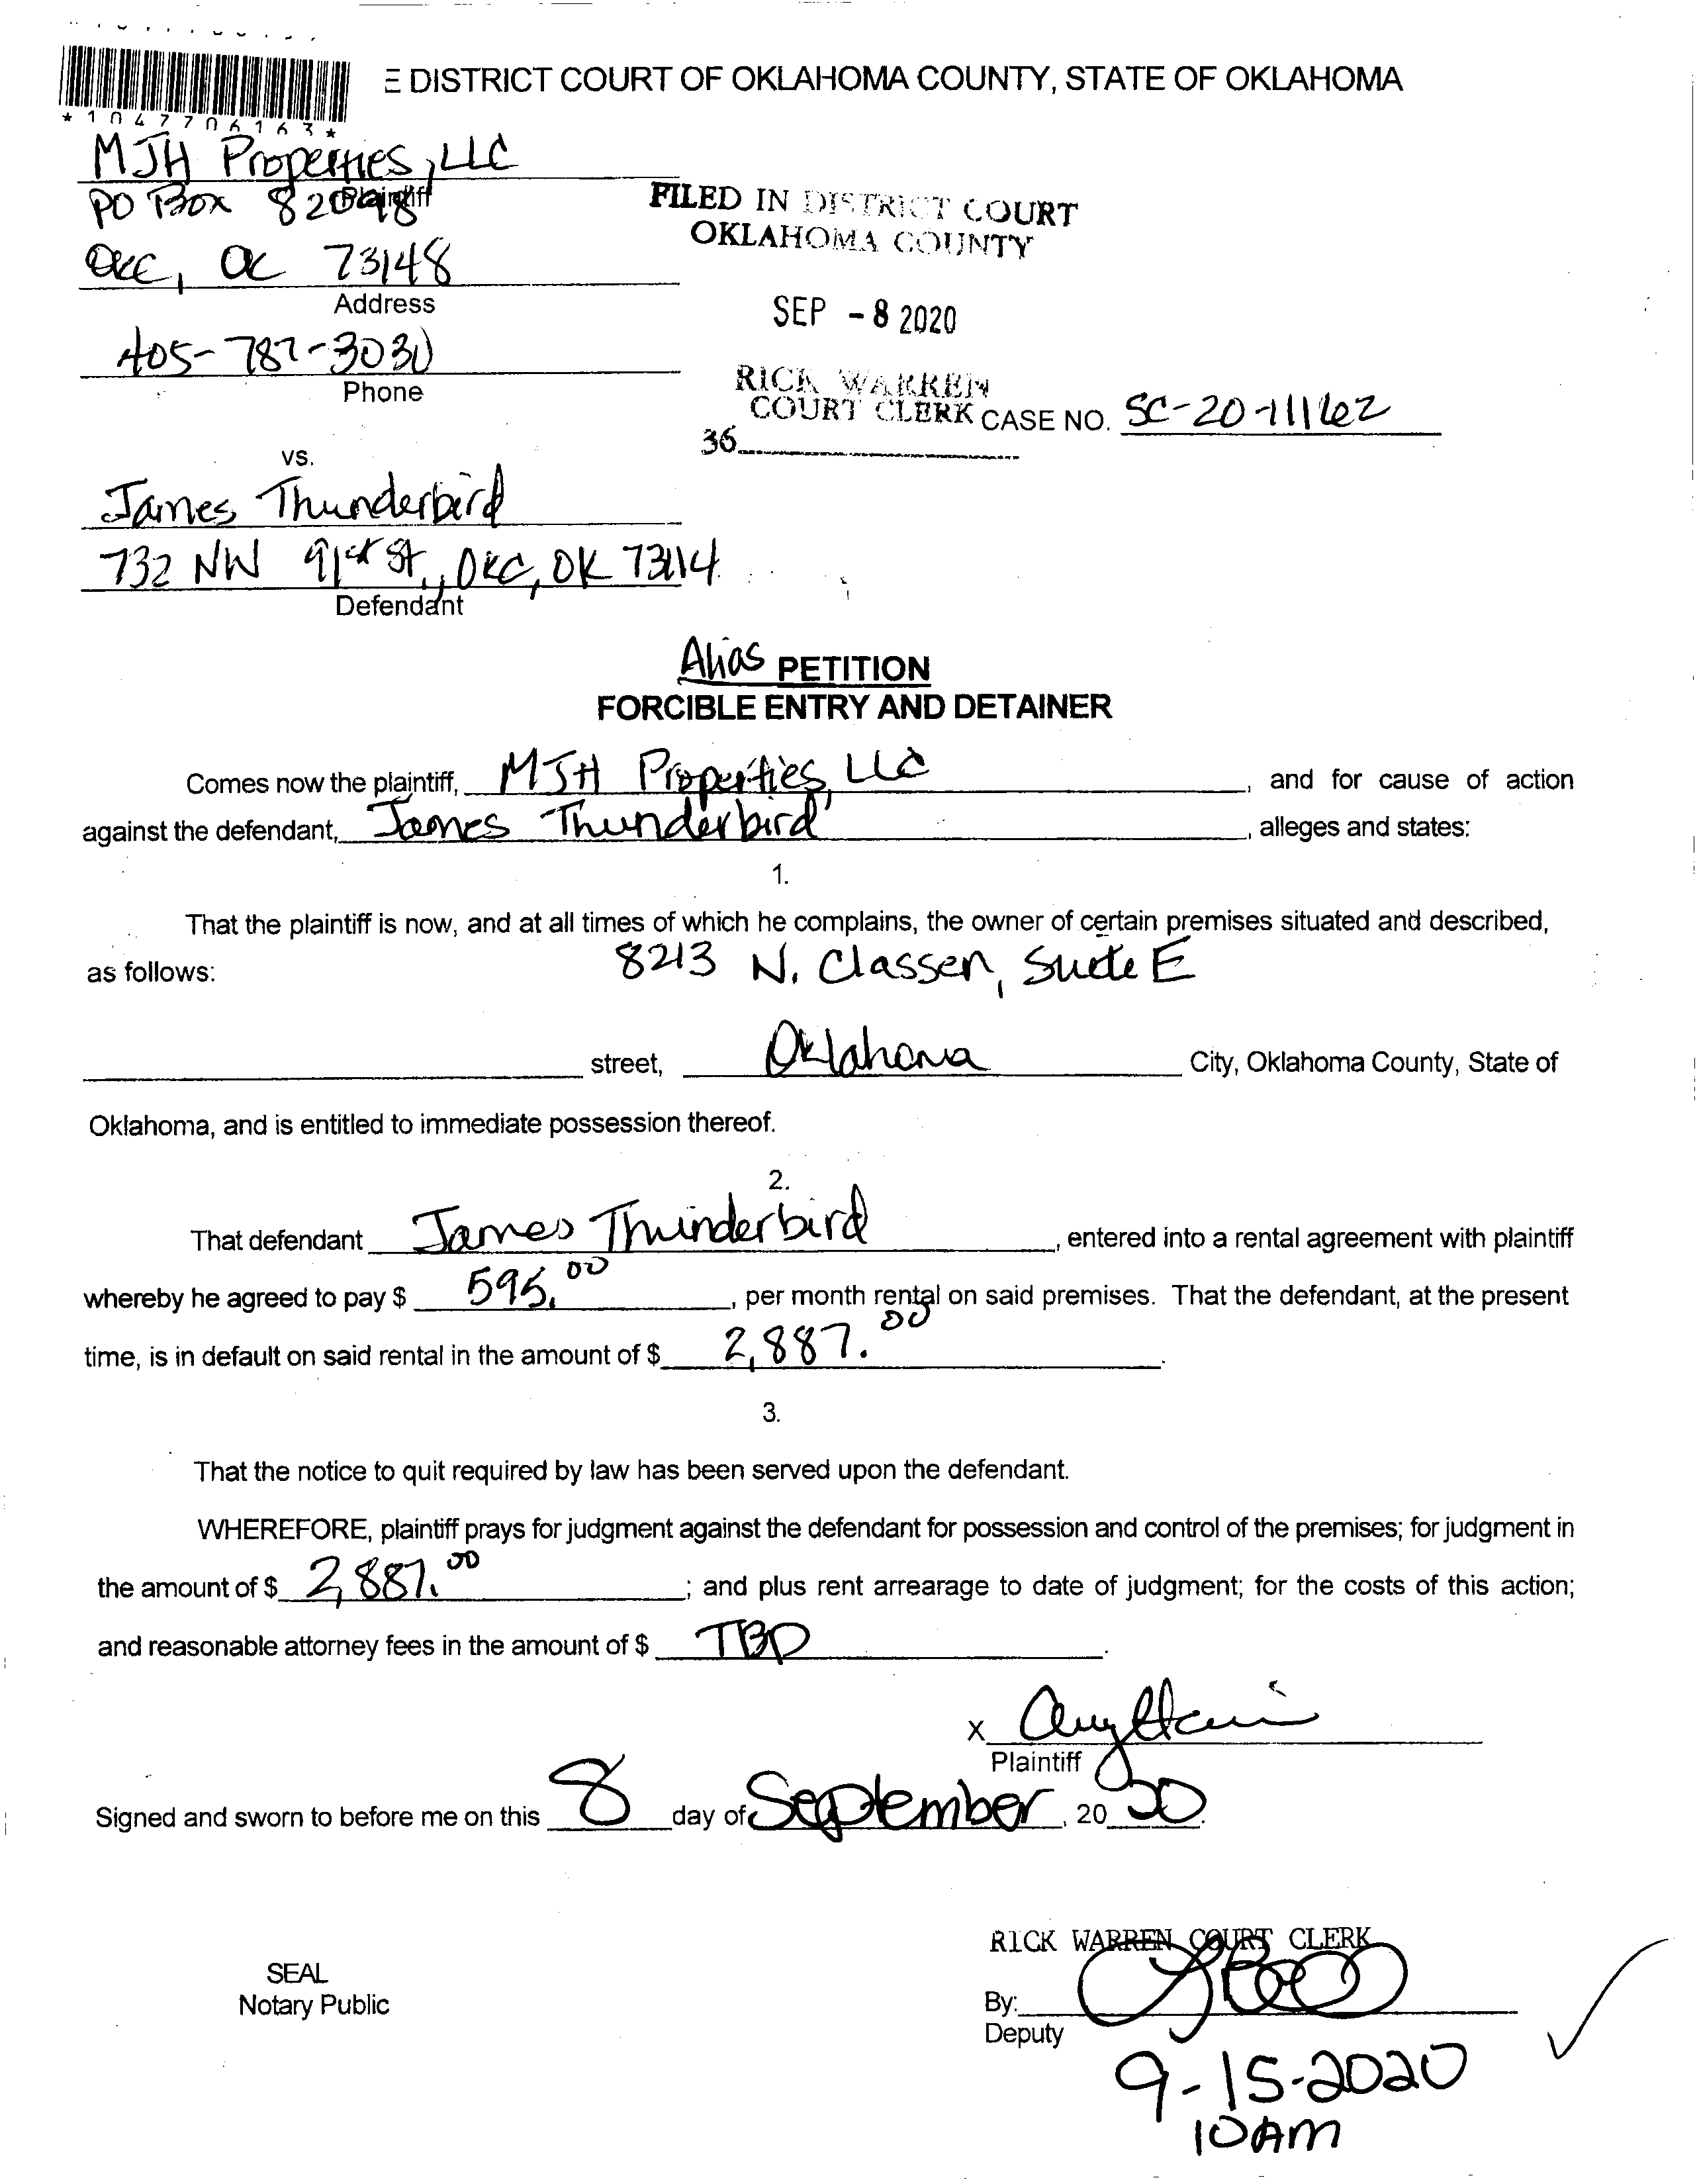 E DISTRICT COURT OF OKLAHOMA COUNTY, STATE OF OKLAHOMA
*1047706163*
MJH Properties, LLC
Plaintiff
PO Box 82098
OKC, OK 73148
Address
FILED IN DISTRICT COURT
OKLAHOMA COUNTY
SEP -8 2020
405-787-3030
Phone
RICK WARREN
COURT CLERK
36
CASE NO. SC-20-11162
vs.
James Thunderbird
732 NW 91st St., OKC, OK 73114
Defendant
Alias PETITION
FORCIBLE ENTRY AND DETAINER
Comes now the plaintiff, MJH Properties, LLC, and for cause of action
against the defendant, James Thunderbird, alleges and states:
1.
That the plaintiff is now, and at all times of which he complains, the owner of certain premises situated and described,
as follows: 8213 N. Classen, Suite E
street, Oklahoma City, Oklahoma County, State of
Oklahoma, and is entitled to immediate possession thereof.
2.
That defendant James Thunderbird, entered into a rental agreement with plaintiff
whereby he agreed to pay $ 595.00, per month rental on said premises. That the defendant, at the present
time, is in default on said rental in the amount of $ 2,887.00.
3.
That the notice to quit required by law has been served upon the defendant.
WHEREFORE, plaintiff prays for judgment against the defendant for possession and control of the premises; for judgment in
the amount of $ 2,887.00; and plus rent arrearage to date of judgment; for the costs of this action;
and reasonable attorney fees in the amount of $ TBD.
X
Plaintiff
Signed and sworn to before me on this 8 day of September, 20 20.
RICK WARREN COURT CLERK
SEAL
Notary Public
By:
Deputy
9-15-2020
10AM